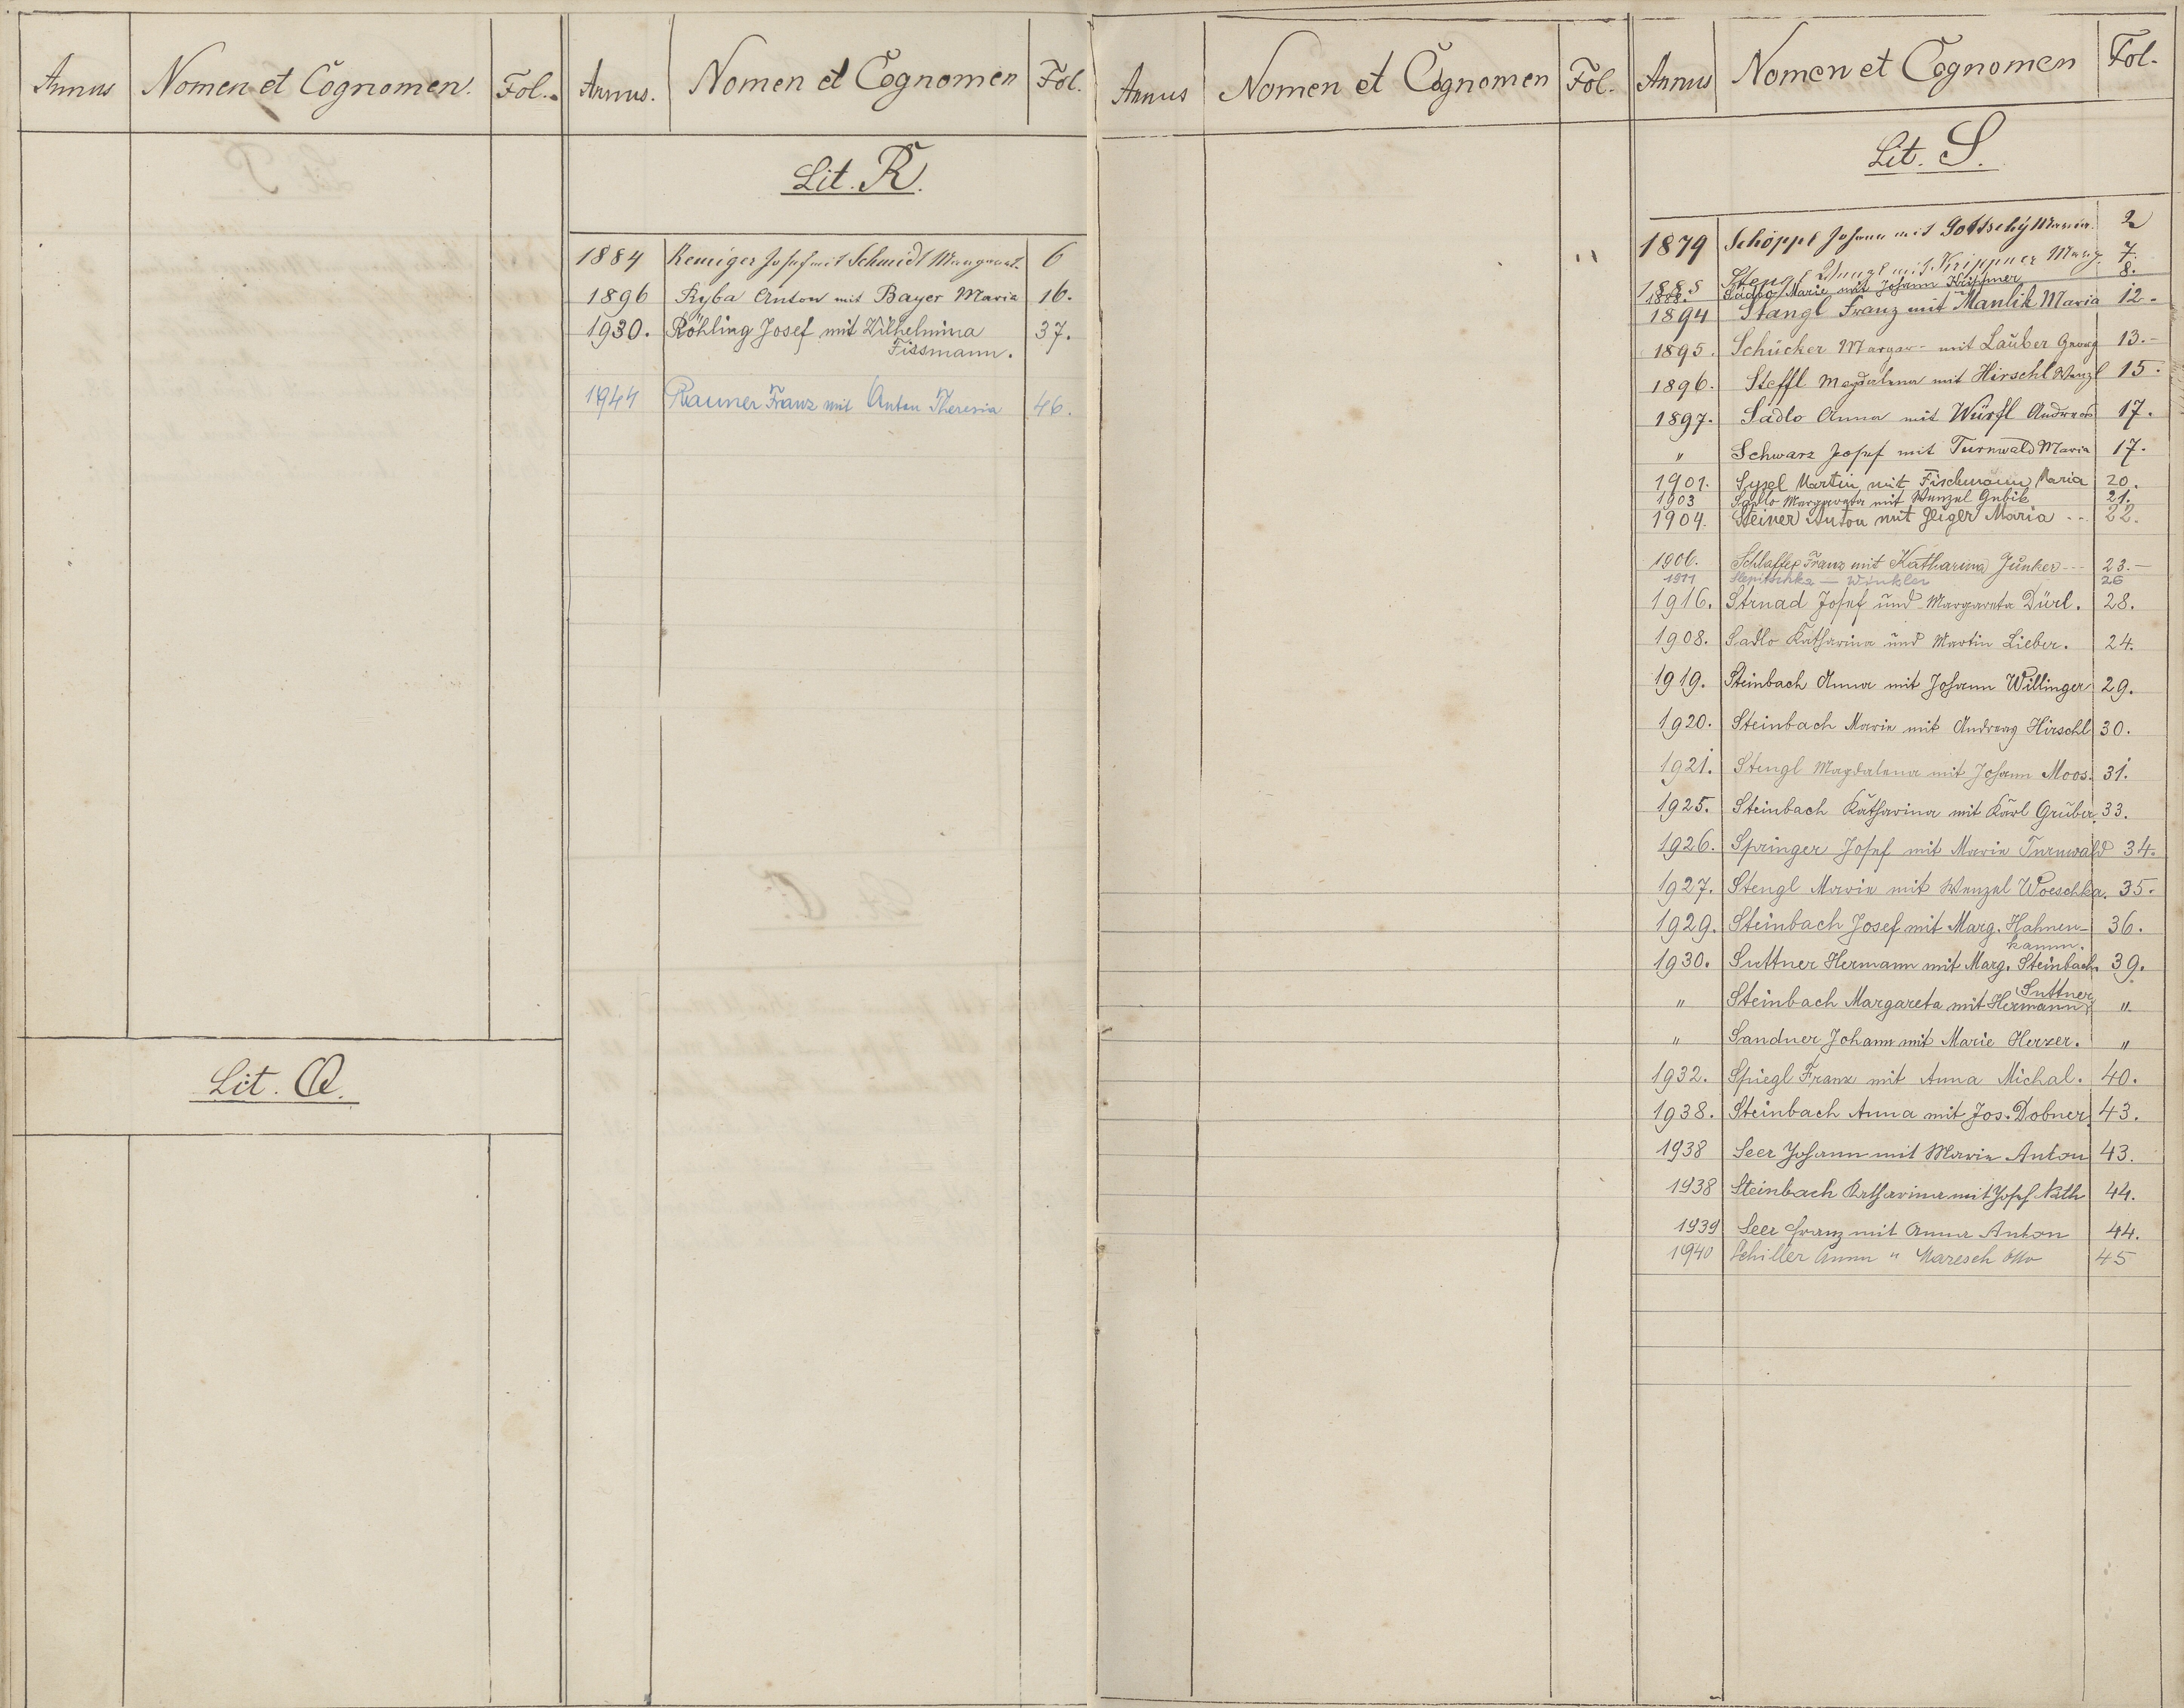 Annus Nomen et Cognomen. Fol.
Lit. Q.
Annus. Nomen et Cognomen Fol.
Lit. R.
1884 Remiger Josef mit Schmidt Margaret. 6
1896 Ryba Anton mit Bayer Maria 16.
1930. Röhling Josef mit Wilhelmina 37.
Fissmann.
1944 Rauner Franz mit Anton Theresia 46.
Annus Nomen et Cognomen Fol.
Annus Nomen et Cognomen Fol.
Lit. S.
1879 Schöppl Johann mit Gottschy Maria 2
1885 Stengl Wenzl mit Krippner Marg. 7.
1888. Sadlo Marie mit Johann 8.
1894 Stangl Franz mit Manlik Maria 12.
1895. Schücker Margar- mit Lauber Georg 13.-
1896. Steffl Magdalena mit Hirschl Wenzl 15.
1897. Sadlo Anna mit Würfl Andreas 17.
" Schwarz Josef mit Turnwald Maria 17.
1901. Sysel Martin mit Fischmann Maria 20.
1903 Sadlo Margareta mit Wenzel Gubik 21.
1904. Steiner Anton mit Zeigler Maria -- 22.
1906. Schlaffer Franz mit Katharina Junker -- 23.-
1911 Slepitschka — Winkler 26
1916. Strnad Josef und Margareta Dürl. 28.
1908. Sadlo Katharina und Martin Lieber. 24.
1919. Steinbach Anna mit Johann Willinger 29.
1920. Steinbach Marie mit Andreas Hirschl 30.
1921. Stengl Magdalena mit Johann Moos. 31.
1925. Steinbach Katharina mit Karl Gruber. 33.
1926. Springer Josef mit Marie Turnwald 34.
1927. Stengl Marie mit Wenzel Woeschka. 35.
1929. Steinbach Josef mit Marg. Hahnen- 36.
kamm.
1930. Suttner Hermann mit Marg. Steinbach 39.
Suttner
" Steinbach Margareta mit Hermann "
" Sandner Johann mit Marie Herzer. "
1932. Spiegl Franz mit Anna Michal. 40.
1938. Steinbach Anna mit Jos. Dobner 43.
1938 Seer Johann mit Marie Anton 43.
1938 Steinbach Katharina mit Josef Kth 44.
1939 Seer Franz mit Anna Anton 44.
1940 Schiller Anna " Maresch Otto 45